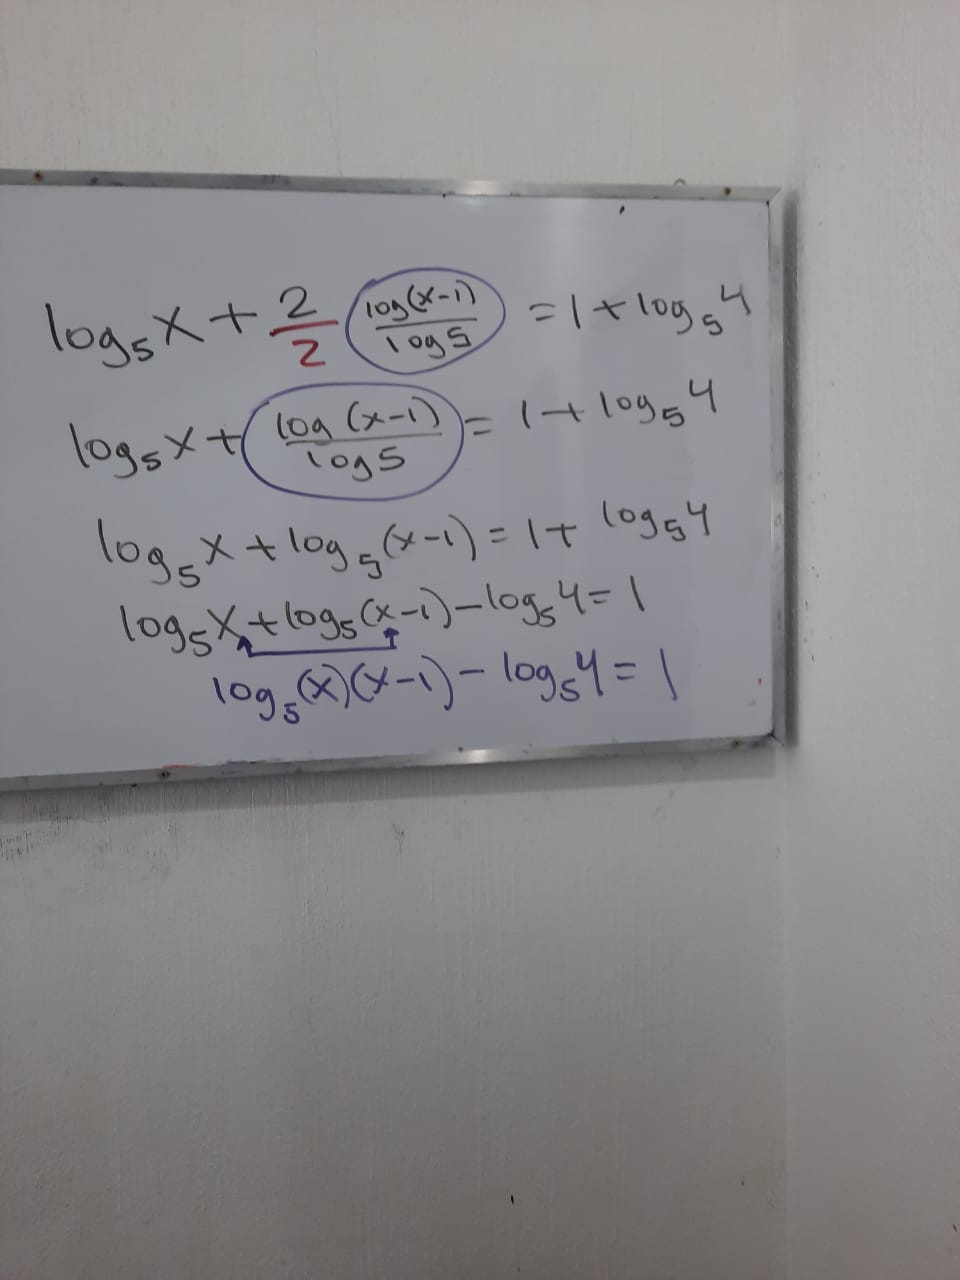 log₅x + 2/2 log(x-1)/log5 = 1 + log₅4
log₅x + log (x-1)/log5 = 1 + log₅4
log₅x + log₅(x-1) = 1 + log₅4
log₅x + log₅(x-1) - log₅4 = 1
log₅(x)(x-1) - log₅4 = 1